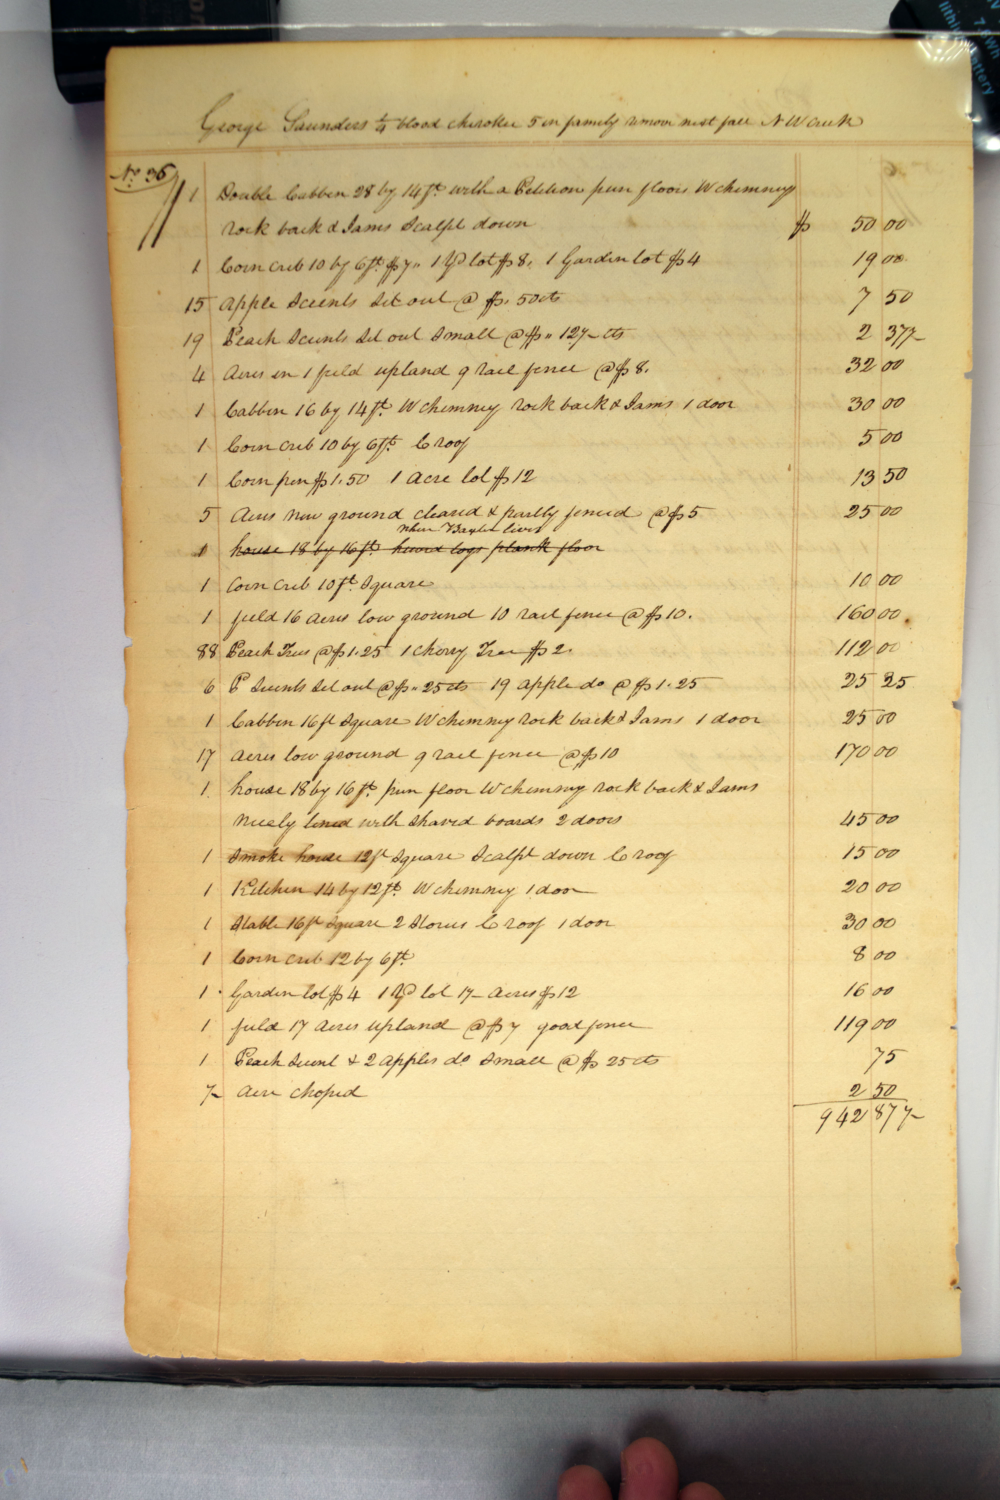 George Saunders ¼ blood cherokee 5 in family remove next fall N W creek
No 36
1 Double Cabben 28 by 14ft with a Petition pun floors W chemney
rock back & Jams Scalpt down $ 50 00
1 Corn crib 10 by 6ft $7,, 1 lot $8. 1 Garden lot $4 19 00
15 apple Scients Set out @ $. 50cts 7 50
19 Peach Scients Set out Small @ $,, 12½ cts 2 37½
4 Acres in 1 field upland 9 rail fence @ $8. 32 00
1 Cabben 16 by 14ft. W chemney rock back & Jams 1 door 30 00
1 Corn crib 10 by 6ft. C roof 5 00
1 Corn pen $1.50 1 Acre lot $12 13 50
5 Acres New ground cleared & partly fenced @ $5 25 00
when lives
1 house 18 by 16ft hewd logs plank floor
1 Corn crib 10ft Square 10 00
1 field 16 Acres low ground 10 rail fence @ $10. 160 00
88 Peach Trees @ $1.25 1 cherry Tree $2. 112 00
6 P Scients Set out @ $,, 25cts 19 apple do @ $1.25 25 25
1 Cabben 16ft Square W chemney rock back & Jams 1 door 25 00
17 Acres low ground 9 rail fence @ $10 170 00
1 house 18 by 16ft. pun floor W chemney rock back & Jams
nicely lined with Shaved boards 2 doors 45 00
1 Smoke house 12ft Square Scalpt down C roof 15 00
1 Kitchen 14 by 12ft. W chemney 1 door 20 00
1 Stable 16ft Square 2 Stories C roof 1 door 30 00
1 Corn crib 12 by 6ft. 8 00
1 Garden lot $4 1 lot ½ Acres $12 16 00
1 field 17 Acres upland @ $7 good fence 119 00
1 Peach Scient & 2 apples do Small @ $ 25 cts 75
½ Acre choped 2 50
942 87½